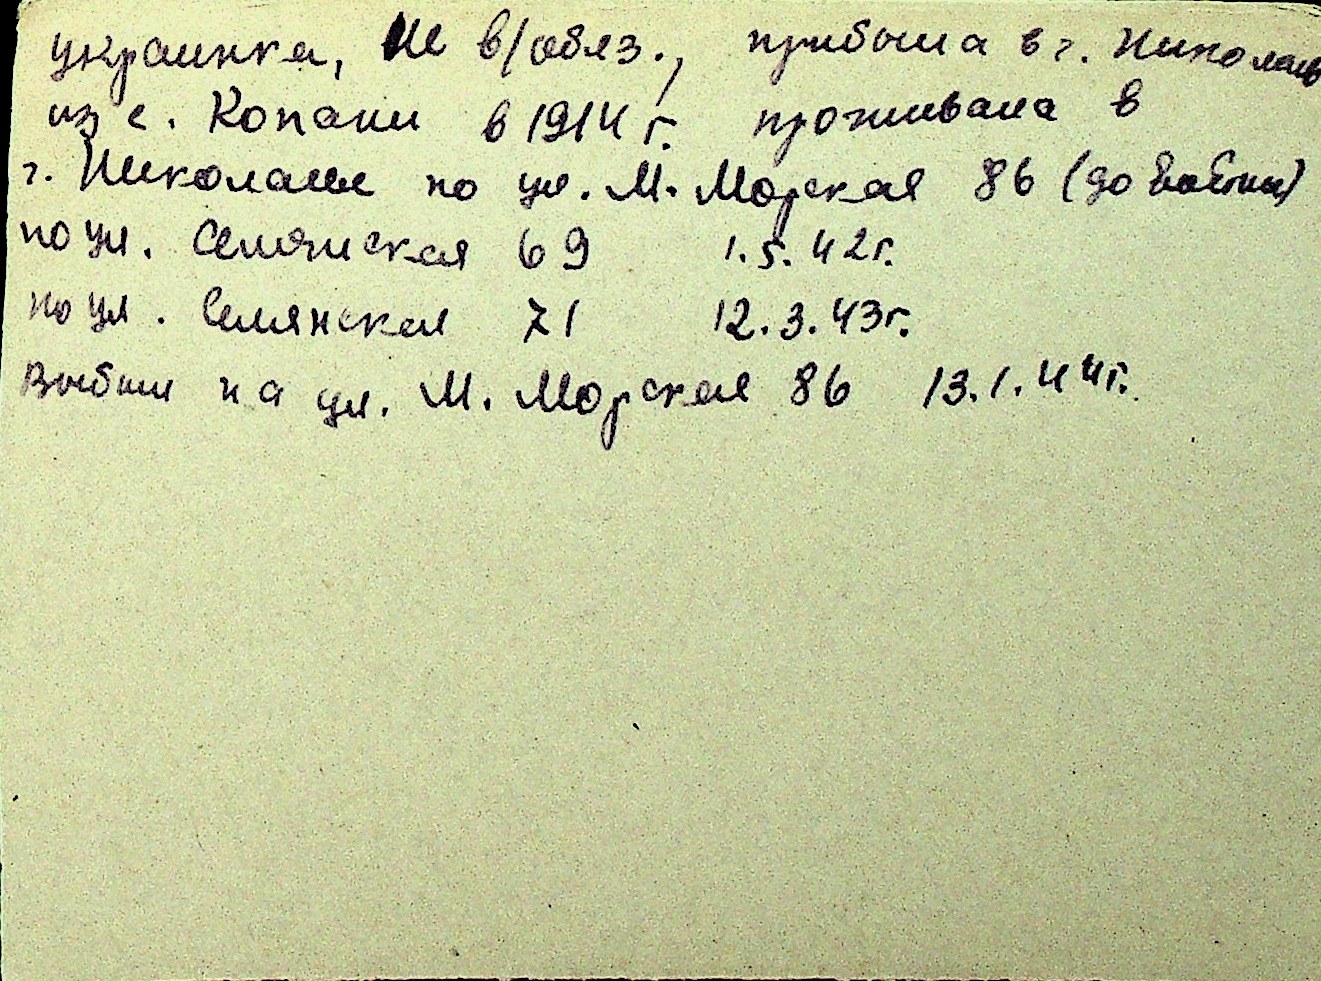 украинка, не в/обяз., прибыла в г. Николаев
из с. Копани в 1914 г. проживала в
г. Николаеве по ул. М. Морская 86 (до войны)
по ул. Селянская 69 1.5.42г.
по ул. Селянская 71 12.3.43г.
Выбыла на ул. М. Морская 86 13.1.44г.